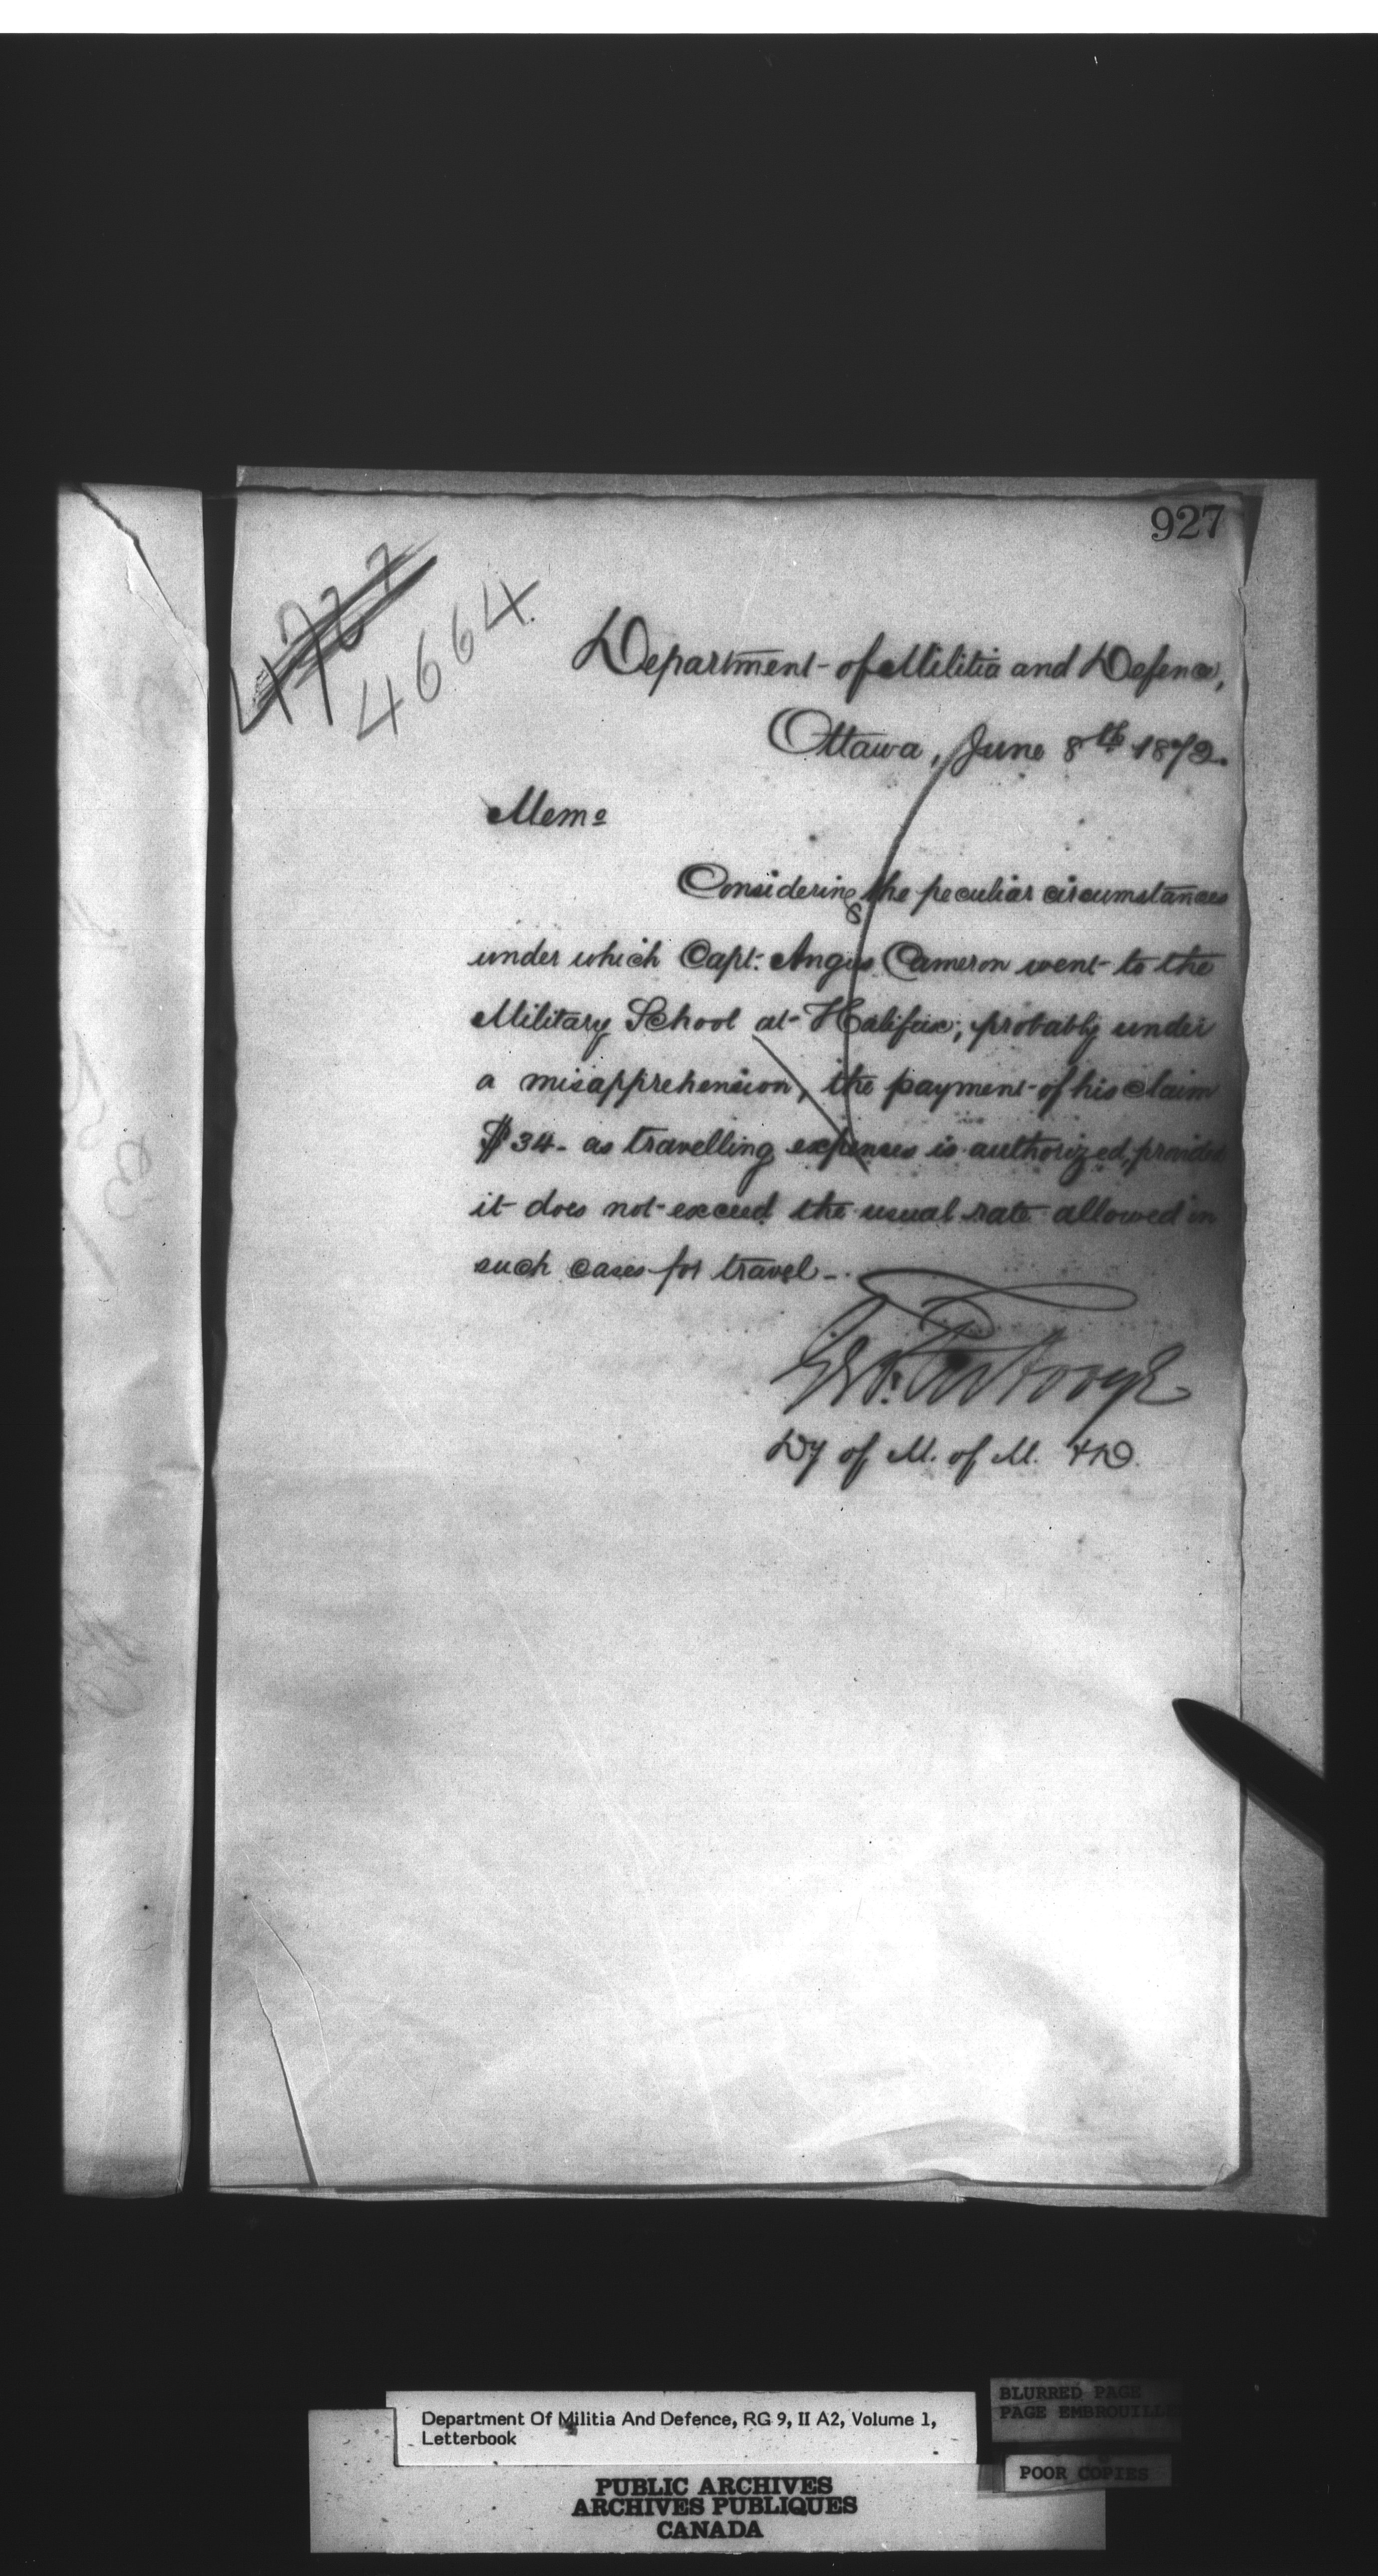 927
4767
4664.
Department of Militia and Defence,
Ottawa, June 8th 1872.
Memo
Considering the peculiar circumstances
under which Capt. Angus Cameron went to the
Military School at Halifax, probably under
a misapprehension, the payment of his claim
$34- as travelling expenses is authorized, provided
it does not exceed the usual rate allowed in
such cases for travel-.
Dy of M. of M. & D.
BLURRED PAGE
PAGE EMBROUILLE
Department Of Militia And Defence, RG 9, II A2, Volume 1,
Letterbook
POOR COPIES
PUBLIC ARCHIVES
ARCHIVES PUBLIQUES
CANADA